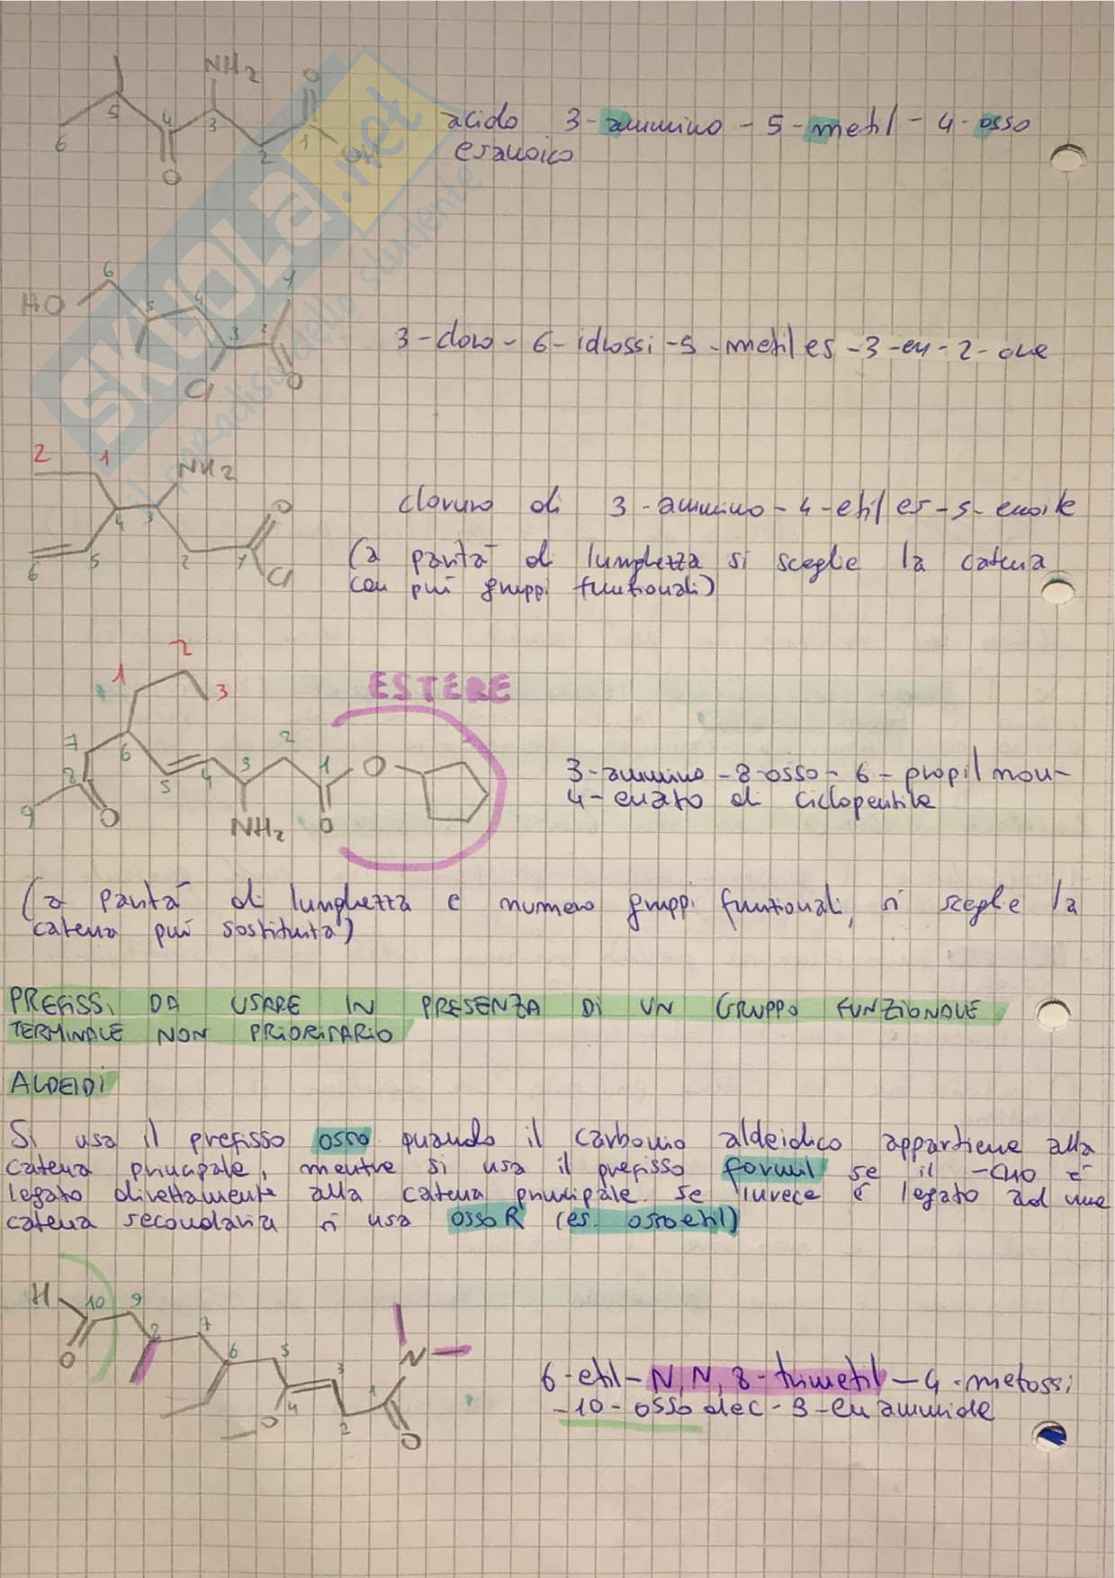 NH2
O
5
4
3
6
2
1
O
acido 3-ammino-5-metil-4-osso
esanoico
SKUOLA.net
6
1
HO
5
4
3
2
Cl
O
3-cloro-6-idrossi-5-metiles-3-en-2-one
2
1
NH2
O
4
3
6
5
2
1
Cl
cloruro di 3-ammino-4-etil es-5-enoile
(a parità di lunghezza si sceglie la catena
con più gruppi funzionali)
2
1
3
ESTERE
7
6
2
8
3
1
O
5
4
9
O
NH2
O
3-ammino-8-osso-6-propil non-
4-enato di ciclopentile
(a parità di lunghezza e numero gruppi funzionali, si sceglie la
catena più sostituita)
PREFISSI DA USARE IN PRESENZA DI UN GRUPPO FUNZIONALE
TERMINALE NON PRIORITARIO
ALDEIDI
Si usa il prefisso osso quando il carbonio aldeidico appartiene alla
catena principale, mentre si usa il prefisso formil se il -CHO è
legato direttamente alla catena principale. Se invece è legato ad una
catena secondaria si usa osso R (es. ossoetil)
H
10
9
8
7
O
6
5
3
N
4
1
O
2
O
6-etil-N,N,8-trimetil-4-metossi
-10-osso dec-3-enammide